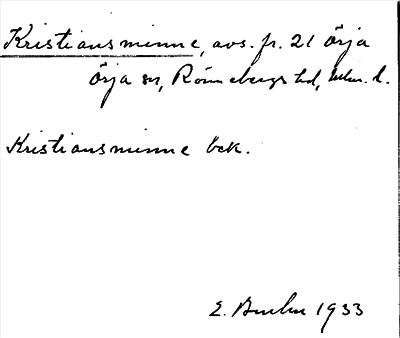 Kristiansminne, avs. fr. 21 Örja
Örja sn, Rönnebergs hd, Malm. l.
Kristiansminne bek.
E. 1933